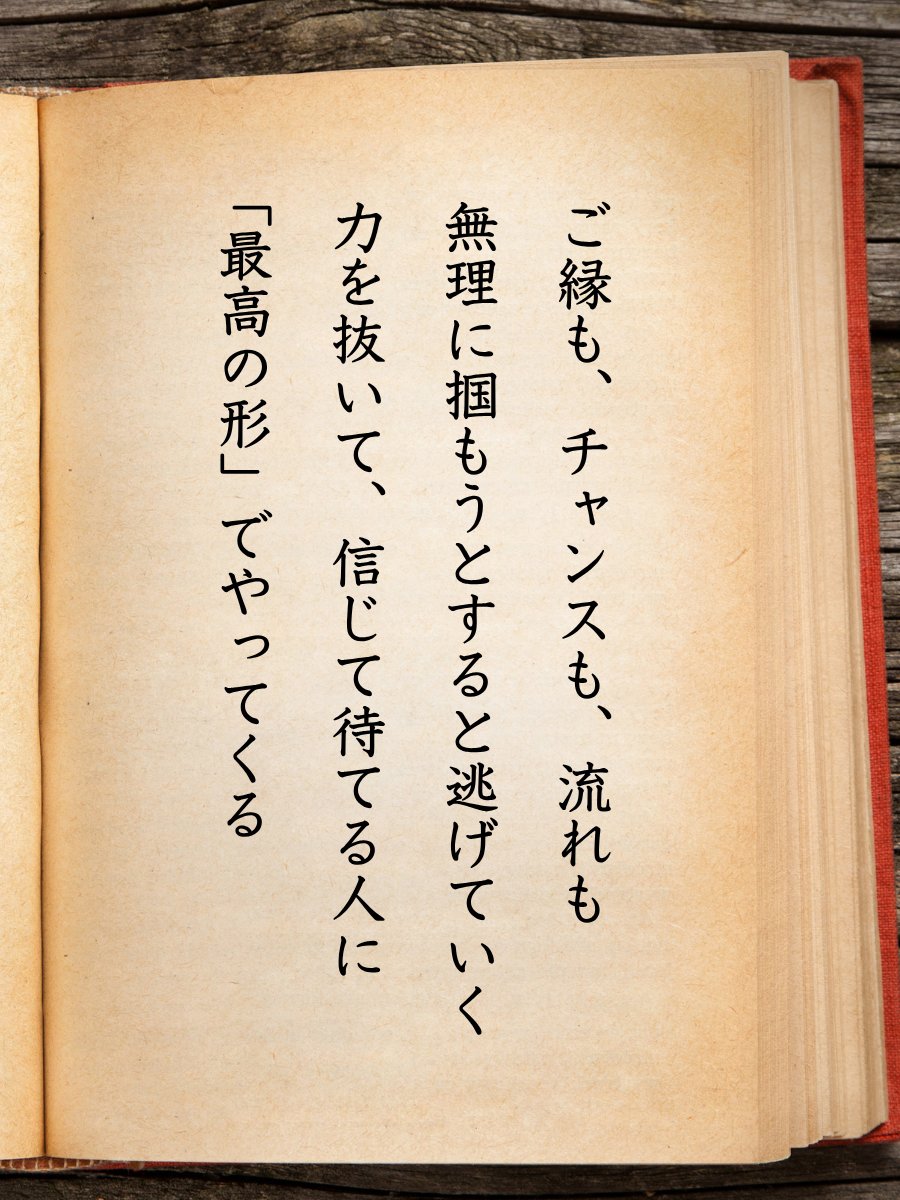 ご縁も、チャンスも、流れも
無理に掴もうとすると逃げていく
力を抜いて、信じて待てる人に
「最高の形」でやってくる